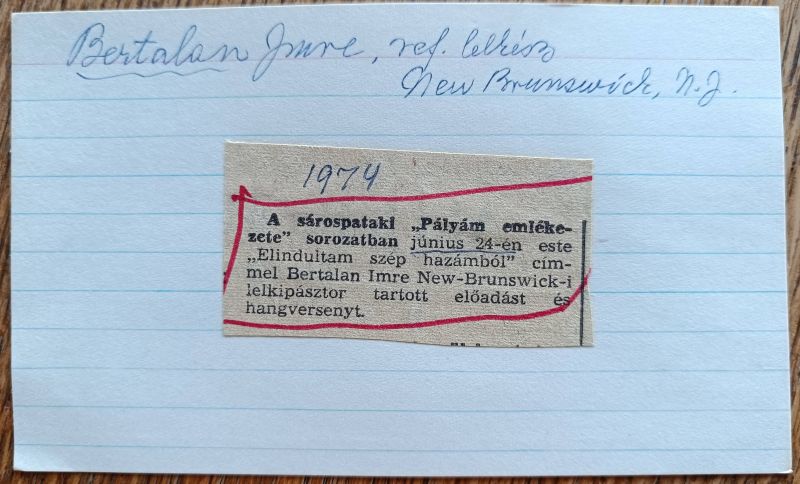 Bertalan Imre, ref. lelkész
New Brunswick, N.J.
1974
A sárospataki „Pályám emléke-
zete” sorozatban június 24-én este
„Elindultam szép hazámból” cím-
mel Bertalan Imre New-Brunswick-i
lelkipásztor tartott előadást és
hangversenyt.